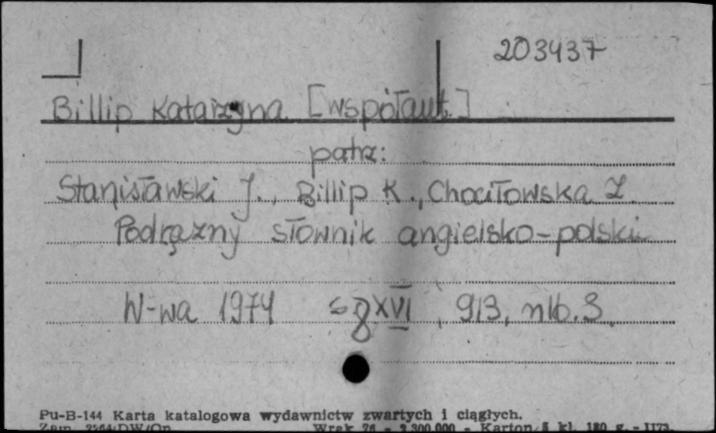 203437
Billip Katarzyna [współaut.]
patrz:
Stanisławski J., Billip K., Chociłowska Z.
Podręczny słownik angielsko-polski
W-wa 1974 s XVI, 913, nlb. 3.
Pu-B-144 Karta katalogowa wydawnictw zwartych i ciągłych.
Zam. DW/Op. Wrak 76 - 3.300.000 - Karton kl. 180 g. - 1173.